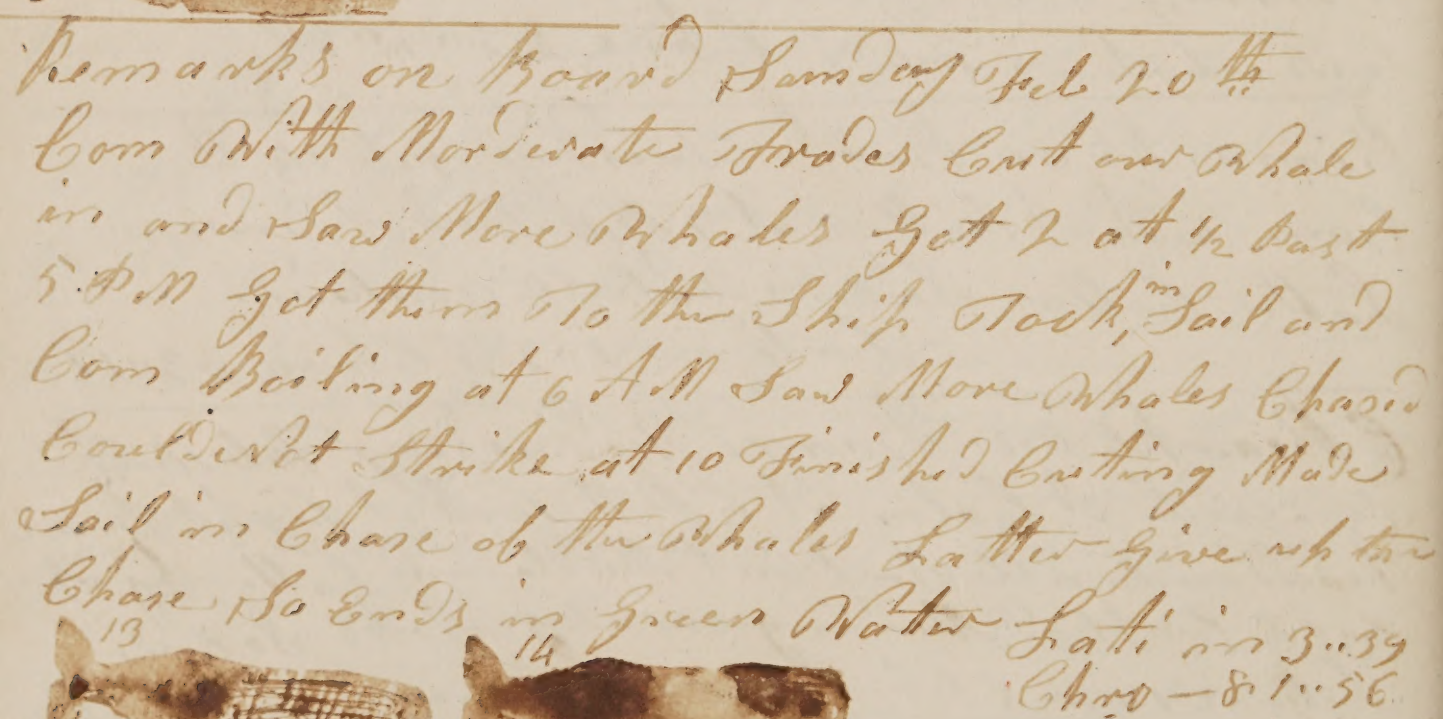 Remarks on Board Sunday Feb 20th
Com With Morderate Trades Cut our Whale
in and Saw More Whales Got 2 at 1/2 Past
5 PM Got them To the Ship Took in Sail and
Com Boiling at 6 AM Saw More Whales Chased
Could Not Strike at 10 Finished Cuting Made
Sail in Chase of the Whales Latter Give up the
Chase So Ends in Green Watter Lati in 3..39
13 14 Chro — 81..56